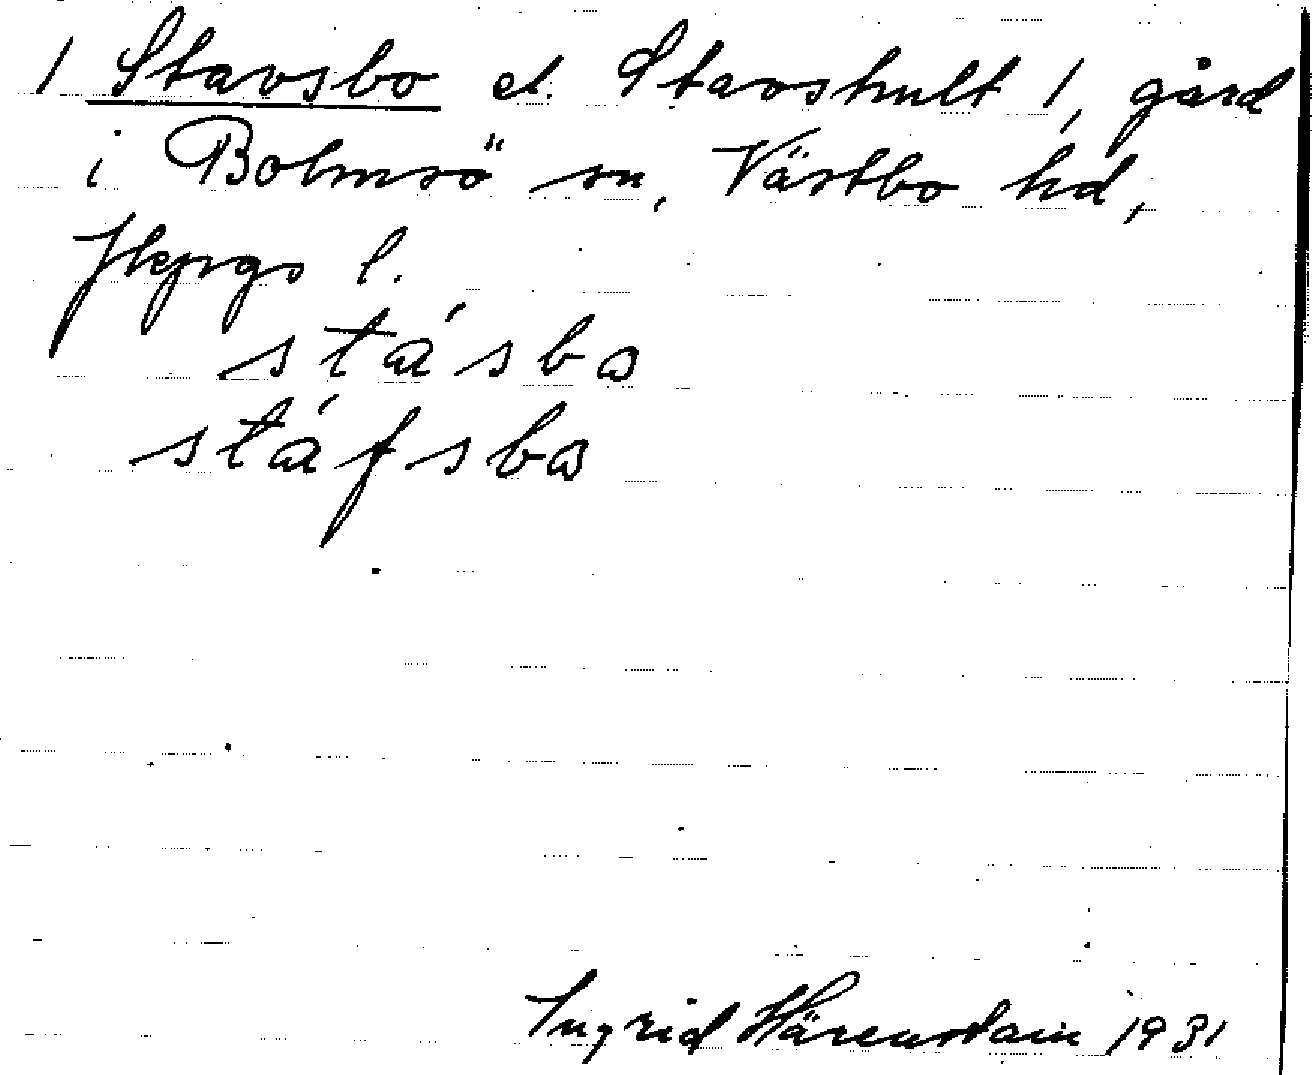 / Stavsbo el. Stavshult /, gård
i Bolmsö sn, Västbo hd,
Jkpgs l.
stásba
stáfsba
Ingrid Härenstam 1931